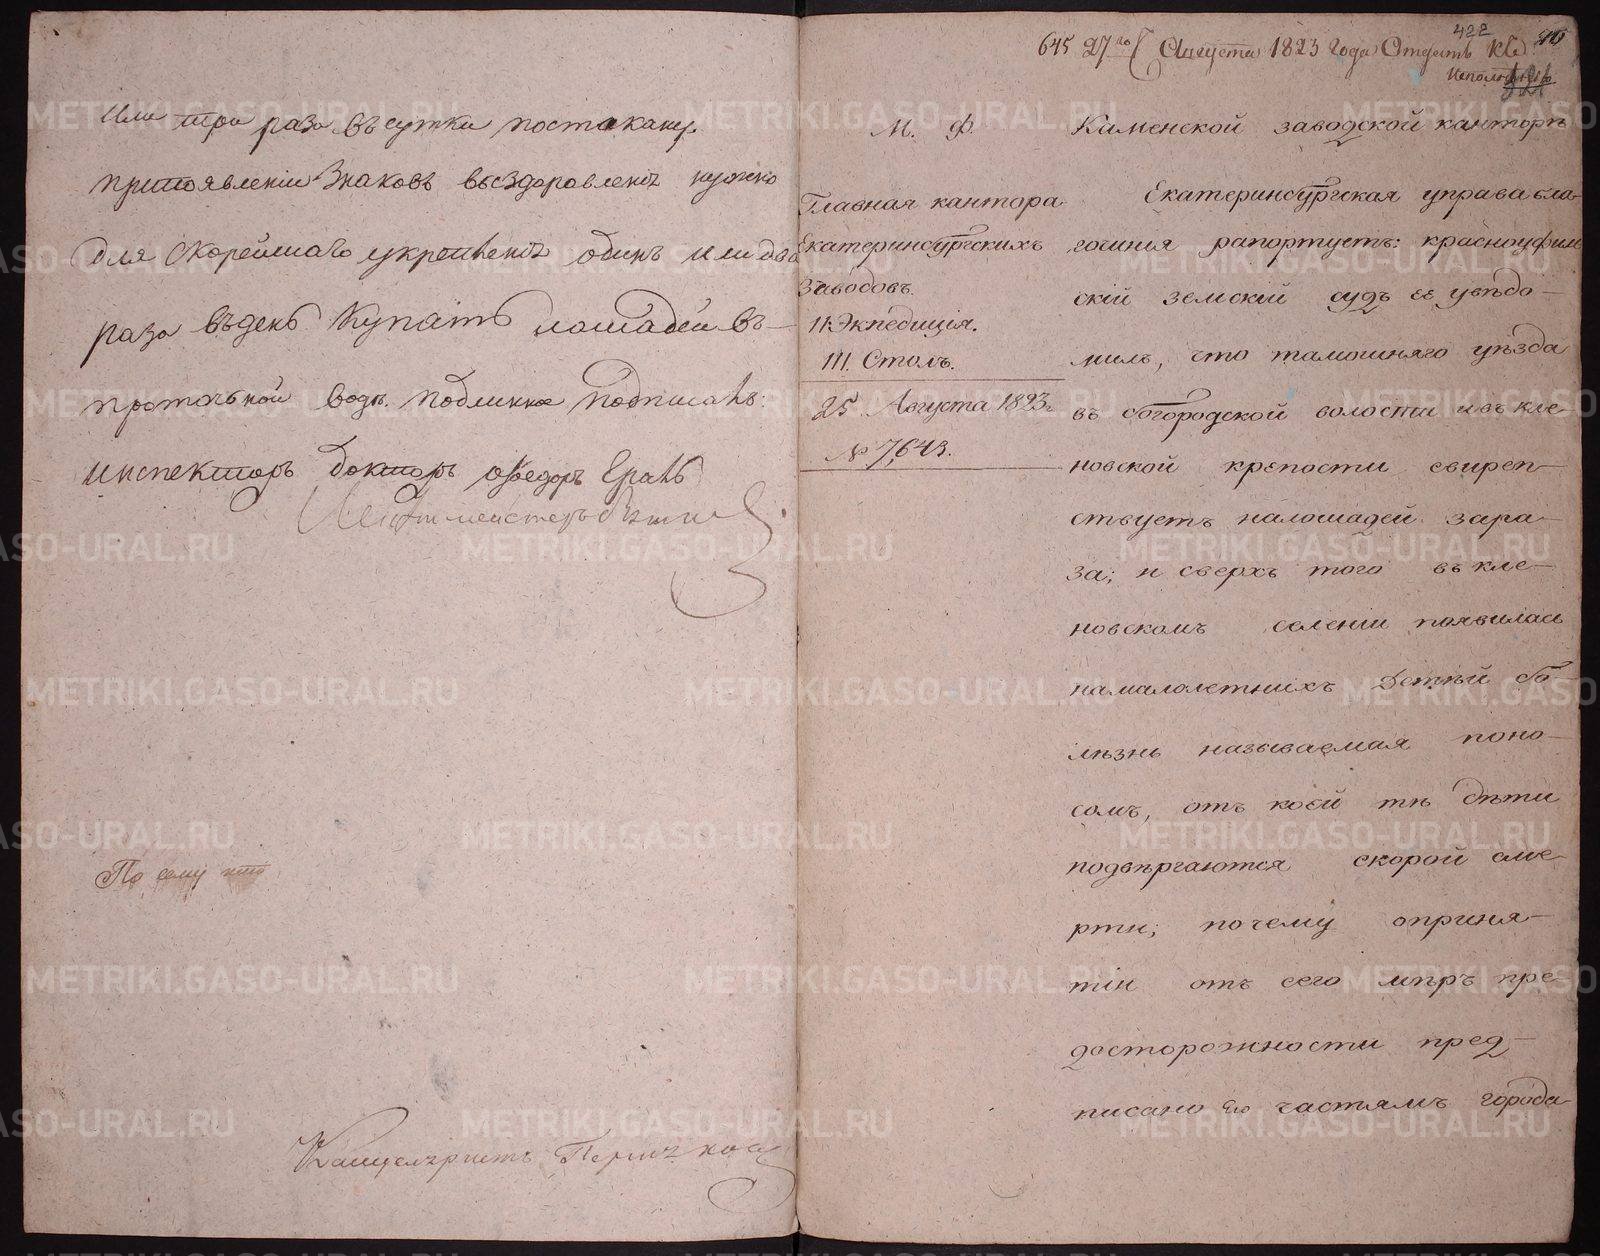 Или три раза въ сутки по стакану.
при появленіи Знаковъ выздоровленія нужно
для Скорейшаго укрепленія одинъ или два
раза въ день Купать лошадей въ
проточной воде. подлинное подписалъ:
инспекторъ докторъ
По сему
Канцеляристъ
645 27го Августа 1823 Года Отдать
422
М. Ф.
Главная кантора
Екатеринбургскихъ
Заводовъ.
II Экпедиція.
III. Столъ.
25 Августа 1823
№ 7,643.
Каменской заводской канторѣ
Екатеринбургская управа бла-
гочинія рапортуетъ: красноуфим
скій земскій судъ ее увѣдо-
милъ, что тамошняго уѣзда
въ богородской волости и въ кле-
новской крепости свиреп-
ствуетъ на лошадей зара-
за; и сверхъ того въ кле-
новскомъ селеніи появилась
на малолетнихъ детей бо-
лѣзнь называемая поно-
сомъ, отъ коей тѣ дѣти
подвѣргаются скорой сме-
рти; почему о приня-
тіи отъ сего мѣръ пре-
досторожности пред-
писано ею частямъ города
METRIKI.GASO-URAL.RU